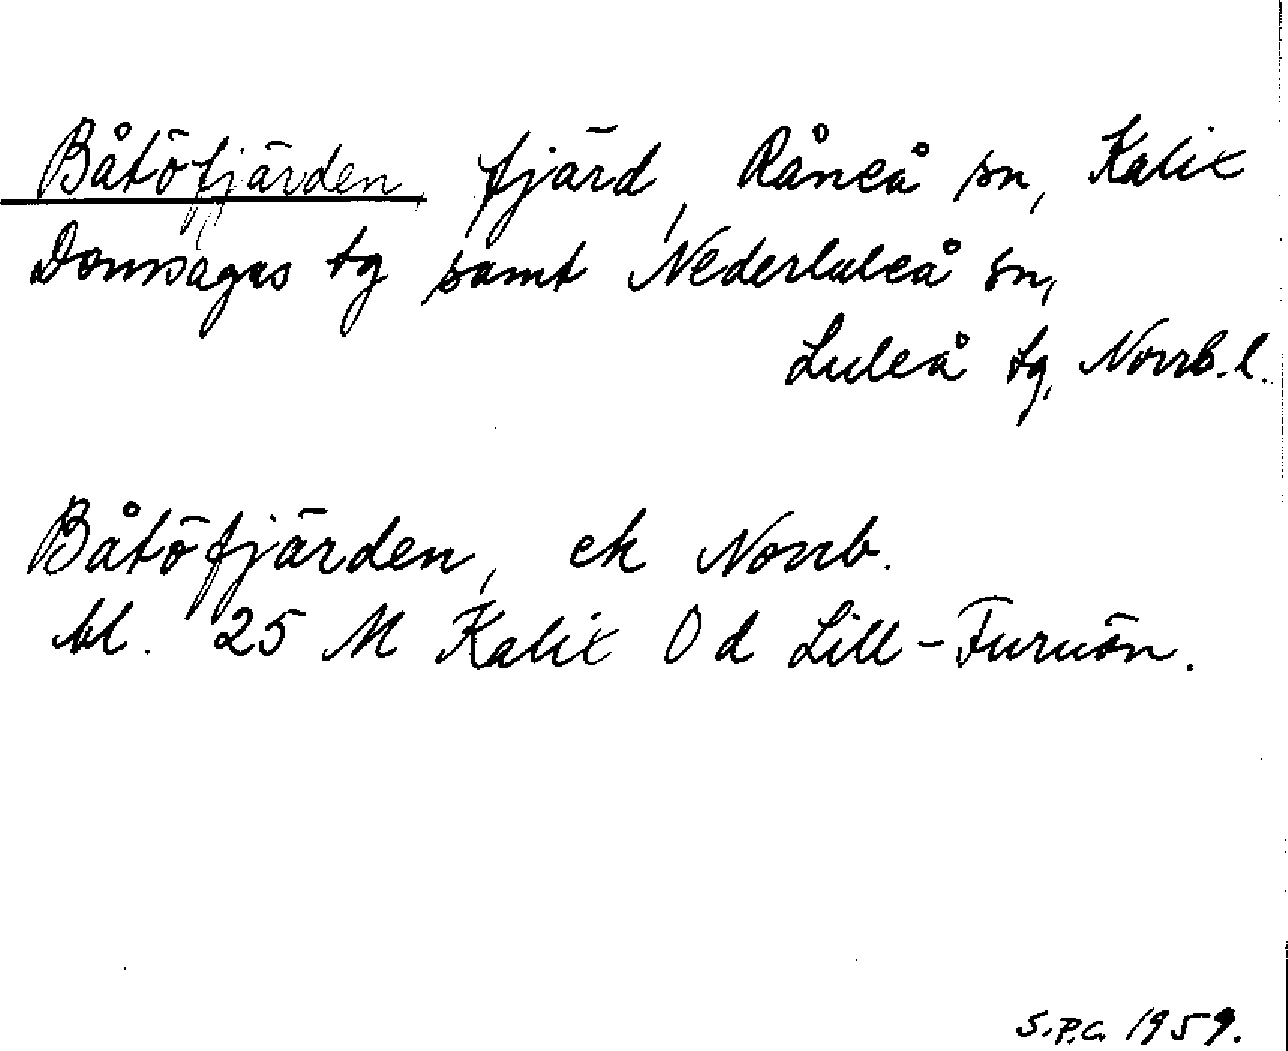 Båtöfjärden, fjärd, Råneå sn, Kalix
Domsagas tg samt Nederluleå sn,
Luleå tg, Norrb. l.
Båtöfjärden, ek Norrb.
bl. 25 M Kalix O d Lill-Furuön.
S.P.C. 1959.